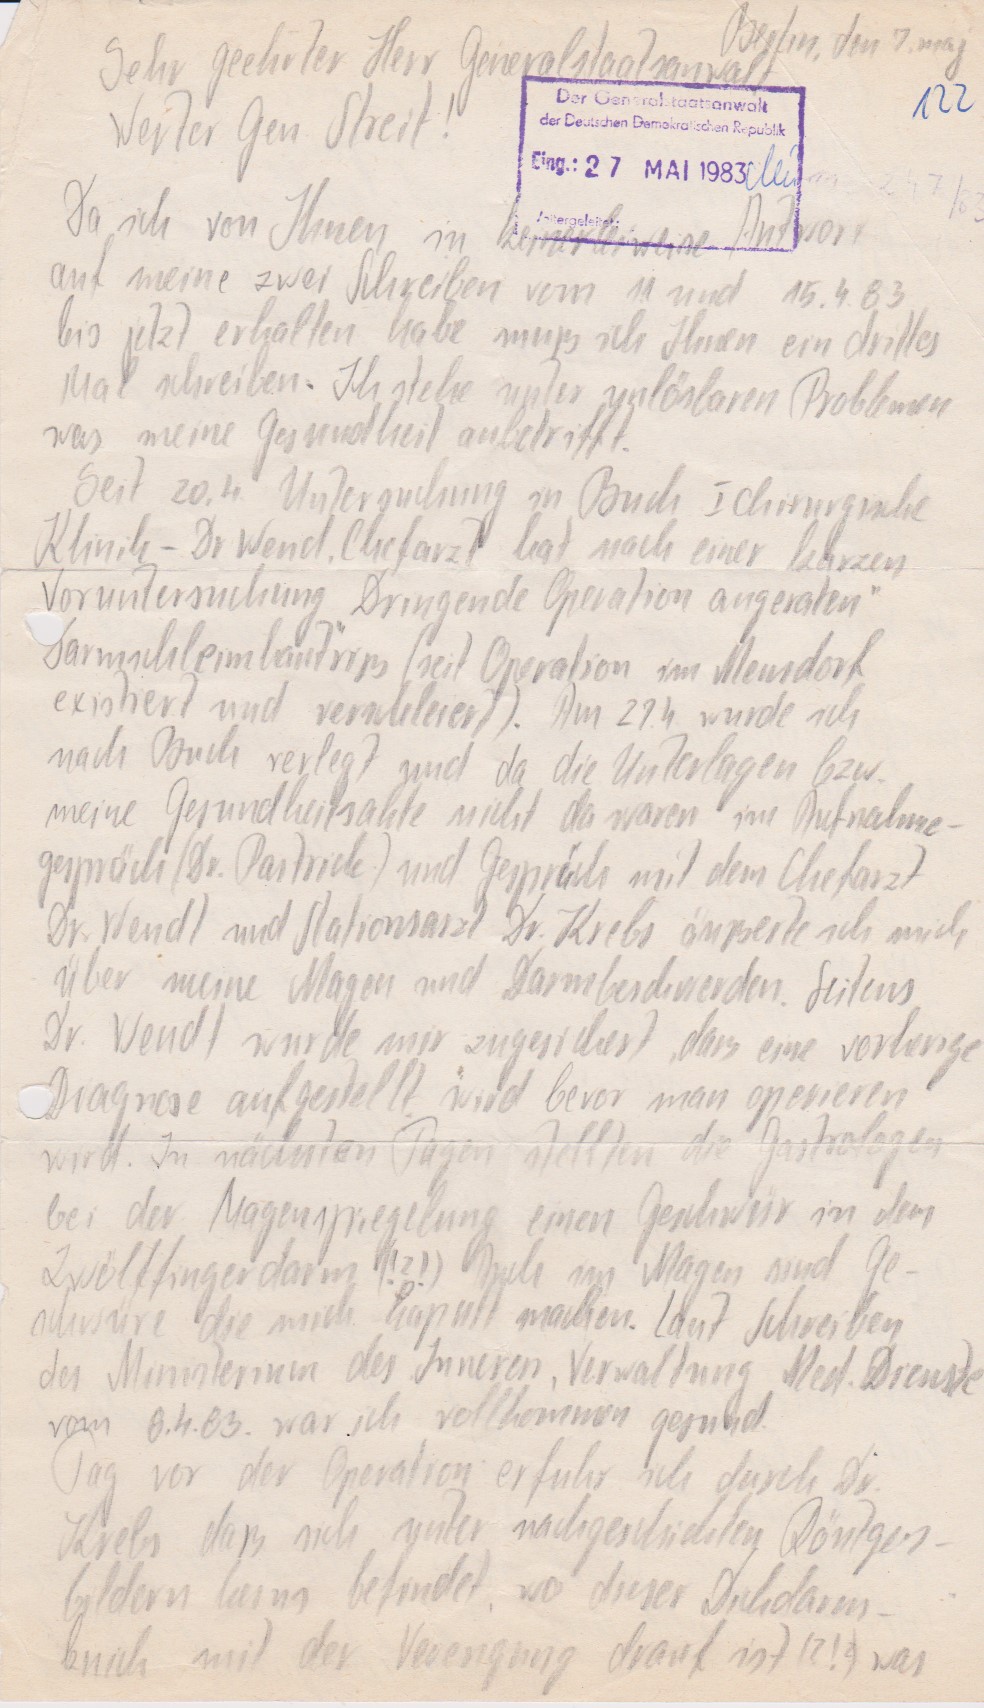 Berlin, den 7. Maj
122
Sehr geehrter Herr Generalstaatsanwalt
Werter Gen Streit!
Der Generalstaatsanwalt
der Deutschen Demokratischen Republik
Eing.: 27 MAI 1983
Weitergeleitet:
Da ich von Ihnen in keinerleiweise Antwort
auf meine zwei Schreiben vom 11 und 15.4.83
bis jetzt erhalten habe muß ich Ihnen ein drittes
Mal schreiben. Ich stehe unter unlösbaren Problemen
was meine Gesundheit anbetrifft.
Seit 20.4. Untersuchung in Buch I Chirurgische
Klinik – Dr Wend, Chefarzt hat nach einer kurzen
Voruntersuchung „Dringende Operation angeraten"
Darmschleimhautriß (seit Operation im Meusdorf
existiert und verschleiert). Am 27.4. wurde ich
nach Buch verlegt und da die Unterlagen bzw.
meine Gesundheitsakte nicht da waren im Aufnahme-
gespräch (Dr. ) und Gespräch mit dem Chefarzt
Dr. Wendt und Stationsarzt Dr. Krebs äußerte ich mich
über meine Magen und Darmbeschwerden. Seitens
Dr. Wendt wurde mir zugesichert, daß eine vorherige
Diagnose aufgestellt wird bevor man operieren
wird. In nächsten Tagen stellten die Gastrologen
bei der Magenspiegelung einen Geschwür in dem
Zwölffingerdarm (!?!) Auch im Magen sind Ge-
schwüre die mich kaputt machen. Laut Schreiben
des Ministerium des Inneren, Verwaltung Med. Dienste
vom 8.4.83. war ich vollkommen gesund.
Tag vor der Operation erfuhr ich durch Dr.
Krebs daß sich unter nachgeschickten Röntgen-
bildern keins befindet, wo dieser Dickdarm-
knick mit der Verengung drauf ist (?!?) was